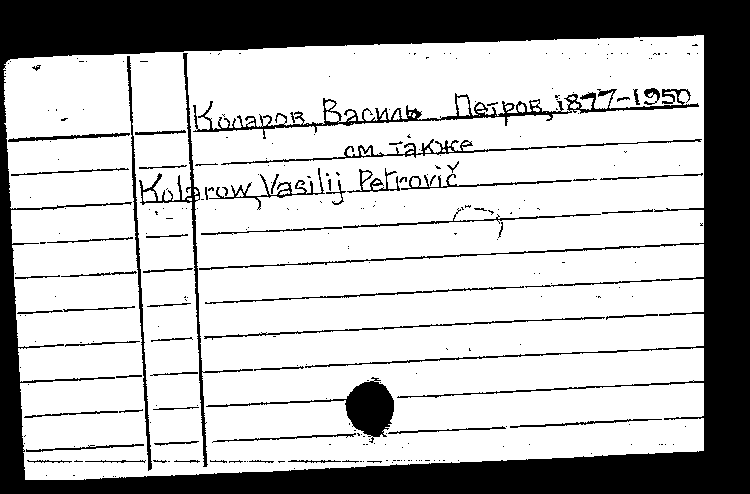 Коларов, Василь Петров, 1877-1950
см. также
Kolarow, Vasilij Petrovič